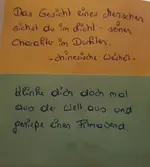 Das Gesicht eines Menschen
siehst du im Licht - seinen
Charakter im Dunkeln.
- chinesische Weisheit -
klinke dich doch mal
aus der Welt aus und
genieße einen Filmabend